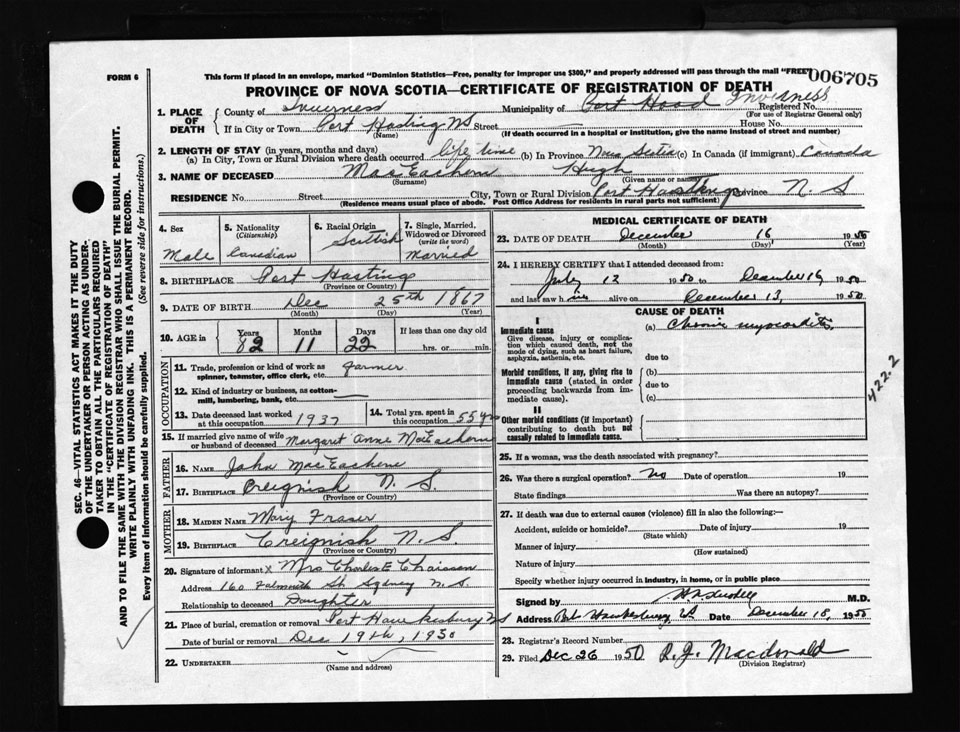 FORM 6
This form if placed in an envelope, marked "Dominion Statistics—Free, penalty for improper use $300," and properly addressed will pass through the mail "FREE"
006705
PROVINCE OF NOVA SCOTIA—CERTIFICATE OF REGISTRATION OF DEATH
1. PLACE OF DEATH
County of Inverness Municipality of Port Hood Inverness Registered No.
(For use of Registrar General only)
If in City or Town Port Hasting NS Street House No.
(Name) (If death occurred in a hospital or institution, give the name instead of street and number)
2. LENGTH OF STAY (in years, months and days)
(a) In City, Town or Rural Division where death occurred life time (b) In Province Nova Scotia (c) In Canada (if immigrant) Canada
3. NAME OF DECEASED MacEachern Hugh
(Surname) (Given name or names)
RESIDENCE No. Street City, Town or Rural Division Port Hastings Province N. S
(Residence means usual place of abode. Post Office Address for residents in rural parts not sufficient)
4. Sex
Male
5. Nationality
(Citizenship)
Canadian
6. Racial Origin
Scottish
7. Single, Married, Widowed or Divorced
(write the word)
Married
8. BIRTHPLACE Port Hasting
(Province or Country)
9. DATE OF BIRTH Dec 25th 1867
(Month) (Day) (Year)
10. AGE in Years Months Days If less than one day old
82 11 22 hrs. or min.
OCCUPATION
11. Trade, profession or kind of work as spinner, teamster, office clerk, etc. Farmer
12. Kind of industry or business, as cotton-mill, lumbering, bank, etc.
13. Date deceased last worked at this occupation 1937
14. Total yrs. spent in this occupation 55 yrs
15. If married give name of wife or husband of deceased Margaret Anne MacEachern
FATHER
16. NAME John MacEachern
17. BIRTHPLACE Creignish N. S.
(Province or Country)
MOTHER
18. MAIDEN NAME Mary Fraser
19. BIRTHPLACE Creignish N. S.
(Province or Country)
20. Signature of informant x Mrs Charles E Chaisson
Address 160 Falmouth St Sydney N. S.
Relationship to deceased Daughter
21. Place of burial, cremation or removal Port Hawkesbury NS
Date of burial or removal Dec 19th, 1950
22. UNDERTAKER
(Name and address)
MEDICAL CERTIFICATE OF DEATH
23. DATE OF DEATH December 16 1950
(Month) (Day) (Year)
24. I HEREBY CERTIFY that I attended deceased from:
July 12 1950 to December 16 1950
and last saw him alive on December 13, 1950
CAUSE OF DEATH
I
Immediate cause
Give disease, injury or complication which caused death, not the mode of dying, such as heart failure, asphyxia, asthenia, etc.
(a) Chronic myocarditis
due to
Morbid conditions, if any, giving rise to immediate cause (stated in order proceeding backwards from immediate cause).
(b)
due to
(c)
II
Other morbid conditions (if important) contributing to death but not causally related to immediate cause.
422.2
25. If a woman, was the death associated with pregnancy?
26. Was there surgical operation? No Date of operation 19
State findings Was there an autopsy?
27. If death was due to external causes (violence) fill in also the following:—
Accident, suicide or homicide? Date of injury 19
(State which)
Manner of injury
(How sustained)
Nature of injury
Specify whether injury occurred in industry, in home, or in public place
Signed by M.D.
Address Port Hawkesbury NS Date December 18, 1950
28. Registrar's Record Number
29. Filed Dec 26 1950 R. J. Macdonald
(Division Registrar)
SEC. 46—VITAL STATISTICS ACT MAKES IT THE DUTY
OF THE UNDERTAKER OR PERSON ACTING AS UNDER-
TAKER TO OBTAIN ALL THE PARTICULARS REQUIRED
IN THE "CERTIFICATE OF REGISTRATION OF DEATH"
AND TO FILE THE SAME WITH THE DIVISION REGISTRAR WHO SHALL ISSUE THE BURIAL PERMIT.
WRITE PLAINLY WITH UNFADING INK. THIS IS A PERMANENT RECORD.
Every item of information should be carefully supplied. (See reverse side for instructions.)